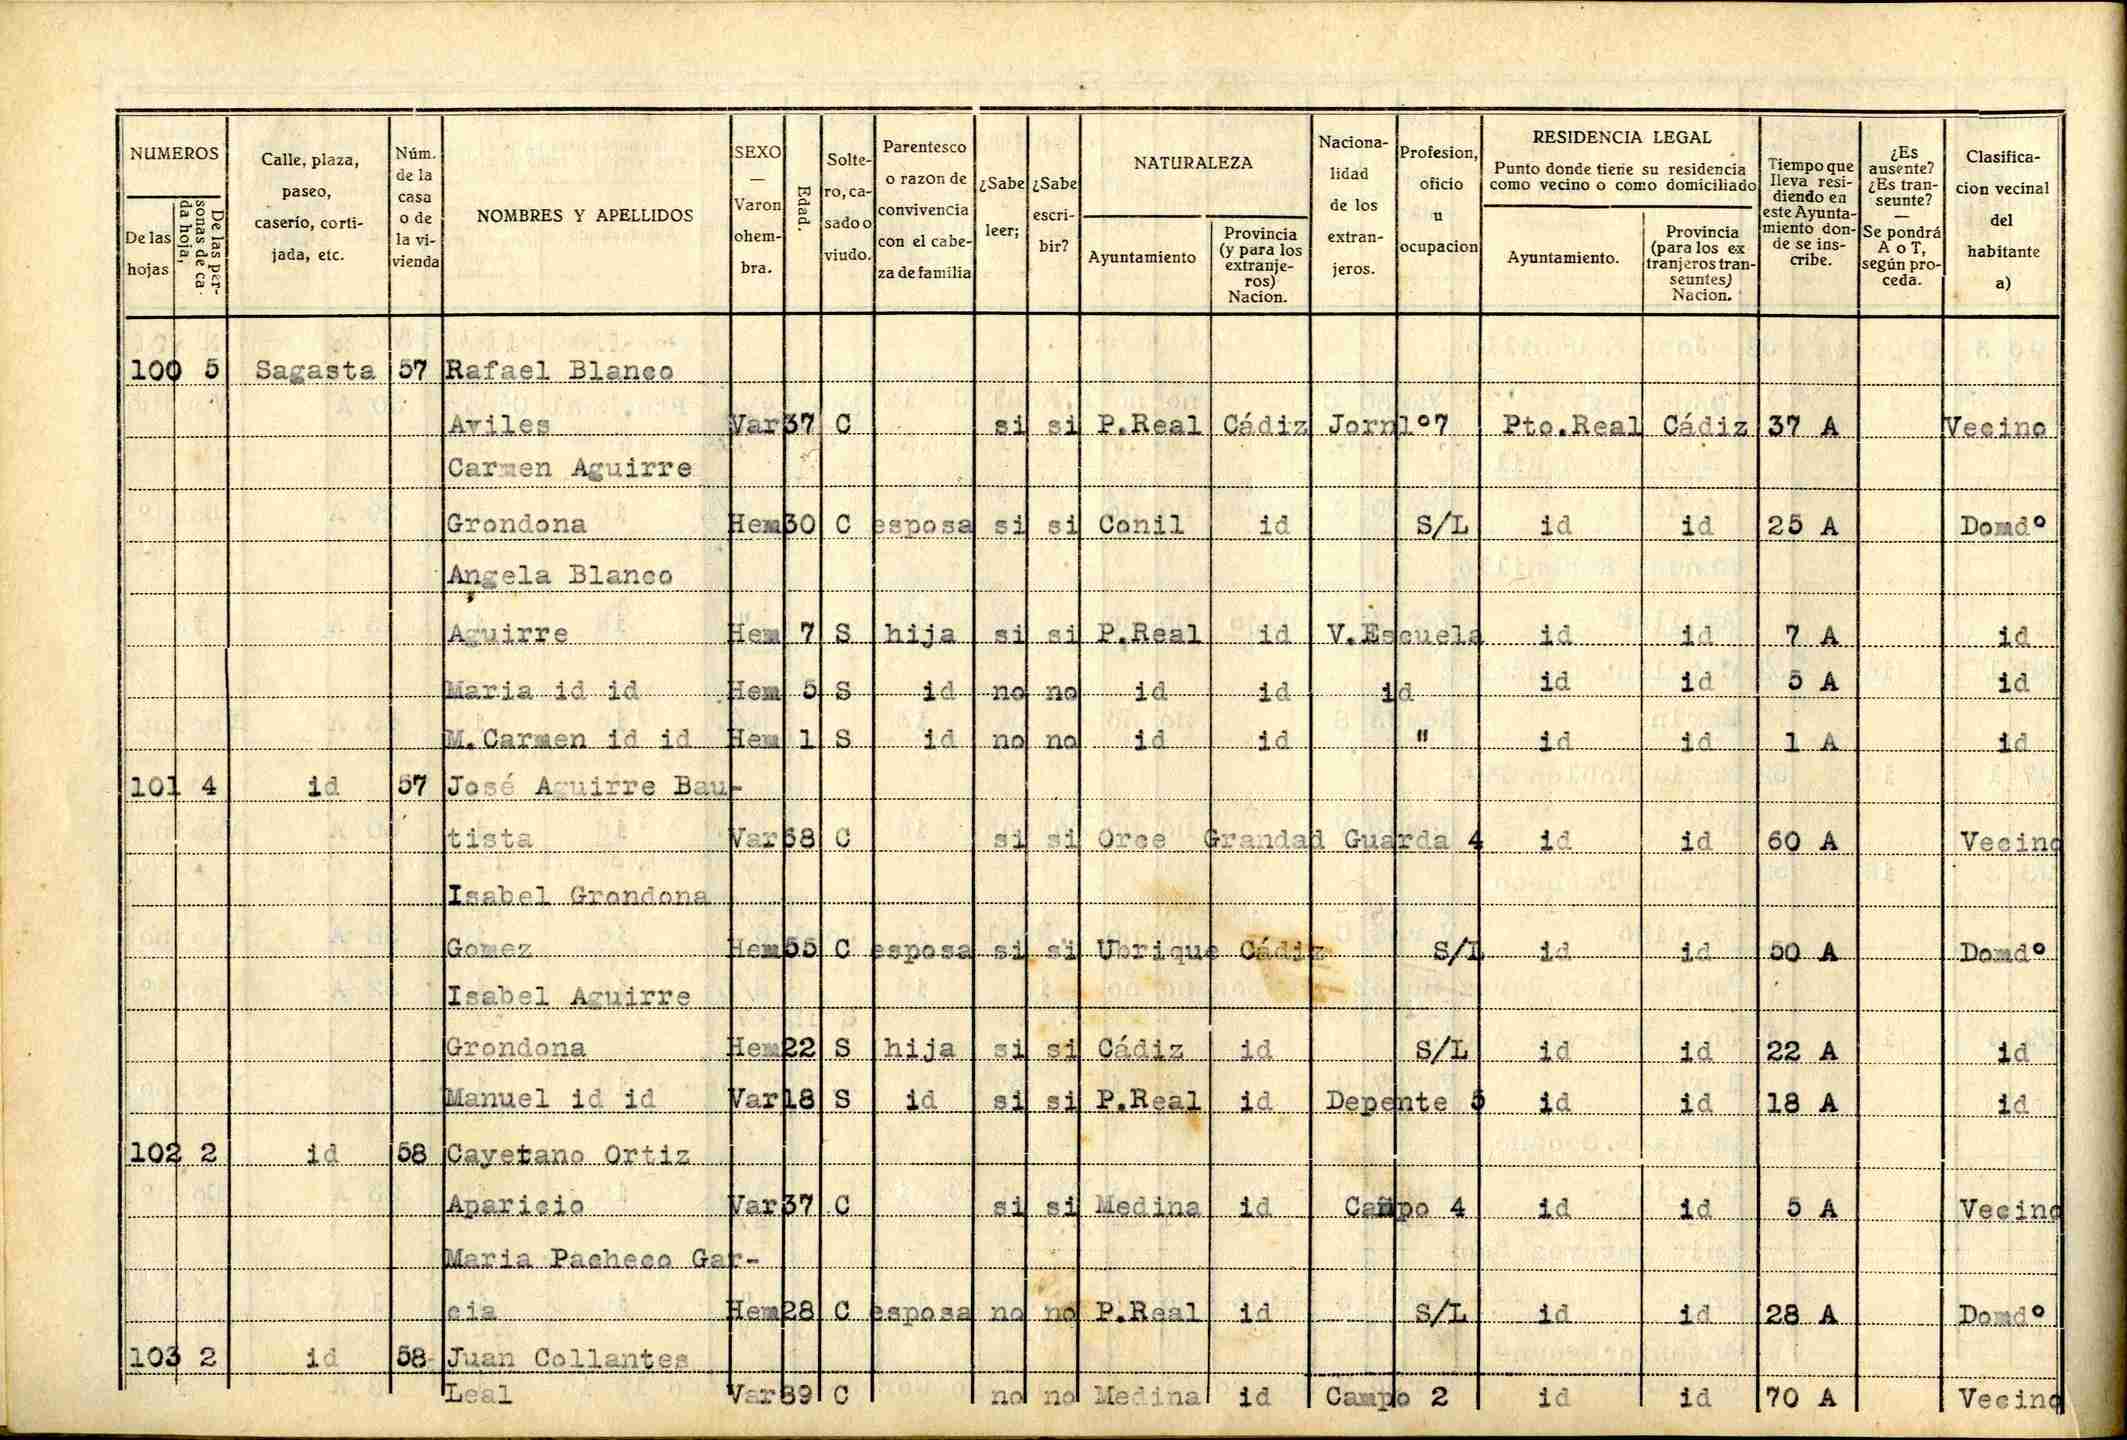 NUMEROS
De las hojas
De las personas de cada hoja,
Calle, plaza, paseo, caserío, cortijada, etc.
Núm. de la casa o de la vivienda
NOMBRES Y APELLIDOS
SEXO — Varon ohembra.
Edad.
Soltero, casado o viudo.
Parentesco o razon de convivencia con el cabeza de familia
¿Sabe leer;
¿Sabe escribir?
NATURALEZA
Ayuntamiento
Provincia (y para los extranjeros) Nacion.
Nacionalidad de los extranjeros.
Profesion, oficio u ocupacion
RESIDENCIA LEGAL
Punto donde tiene su residencia como vecino o como domiciliado
Ayuntamiento.
Provincia (para los extranjeros transeuntes) Nacion.
Tiempo que lleva residiendo en este Ayuntamiento donde se inscribe.
¿Es ausente? ¿Es transeunte? — Se pondrá A o T, según proceda.
Clasificacion vecinal del habitante a)
100 5 Sagasta 57 Rafael Blanco
Aviles Var 37 C si si P.Real Cádiz Jornlº7 Pto.Real Cádiz 37 A Vecino
Carmen Aguirre
Grondona Hem 30 C esposa si si Conil id S/L id id 25 A Domdº
Angela Blanco
Aguirre Hem 7 S hija si si P.Real id V.Escuela id id 7 A id
Maria id id Hem 5 S id no no id id id id id 5 A id
M.Carmen id id Hem 1 S id no no id id " id id 1 A id
101 4 id 57 José Aguirre Bau-
tista Var 68 C si si Orce Grandad Guarda 4 id id 60 A Vecino
Isabel Grondona
Gomez Hem 55 C esposa si si Ubrique Cádiz S/L id id 50 A Domdº
Isabel Aguirre
Grondona Hem 22 S hija si si Cádiz id S/L id id 22 A id
Manuel id id Var 18 S id si si P.Real id Depente 5 id id 18 A id
102 2 id 58 Cayetano Ortiz
Aparicio Var 37 C si si Medina id Campo 4 id id 5 A Vecino
Maria Pacheco Gar-
cia Hem 28 C esposa no no P.Real id S/L id id 28 A Domdº
103 2 id 58 Juan Collantes
Leal Var 89 C no no Medina id Campo 2 id id 70 A Vecino